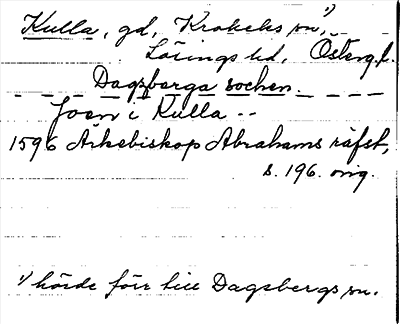 Kulla, gd, Krokeks sn,¹⁾
Lösings hd, Österg.l.
Dagsberga sochen.
Joen i Kulla --
1596 Arkebiskop Abrahams räfst,
s. 196. orig.
¹⁾ hörde förr till Dagsbergs sn.